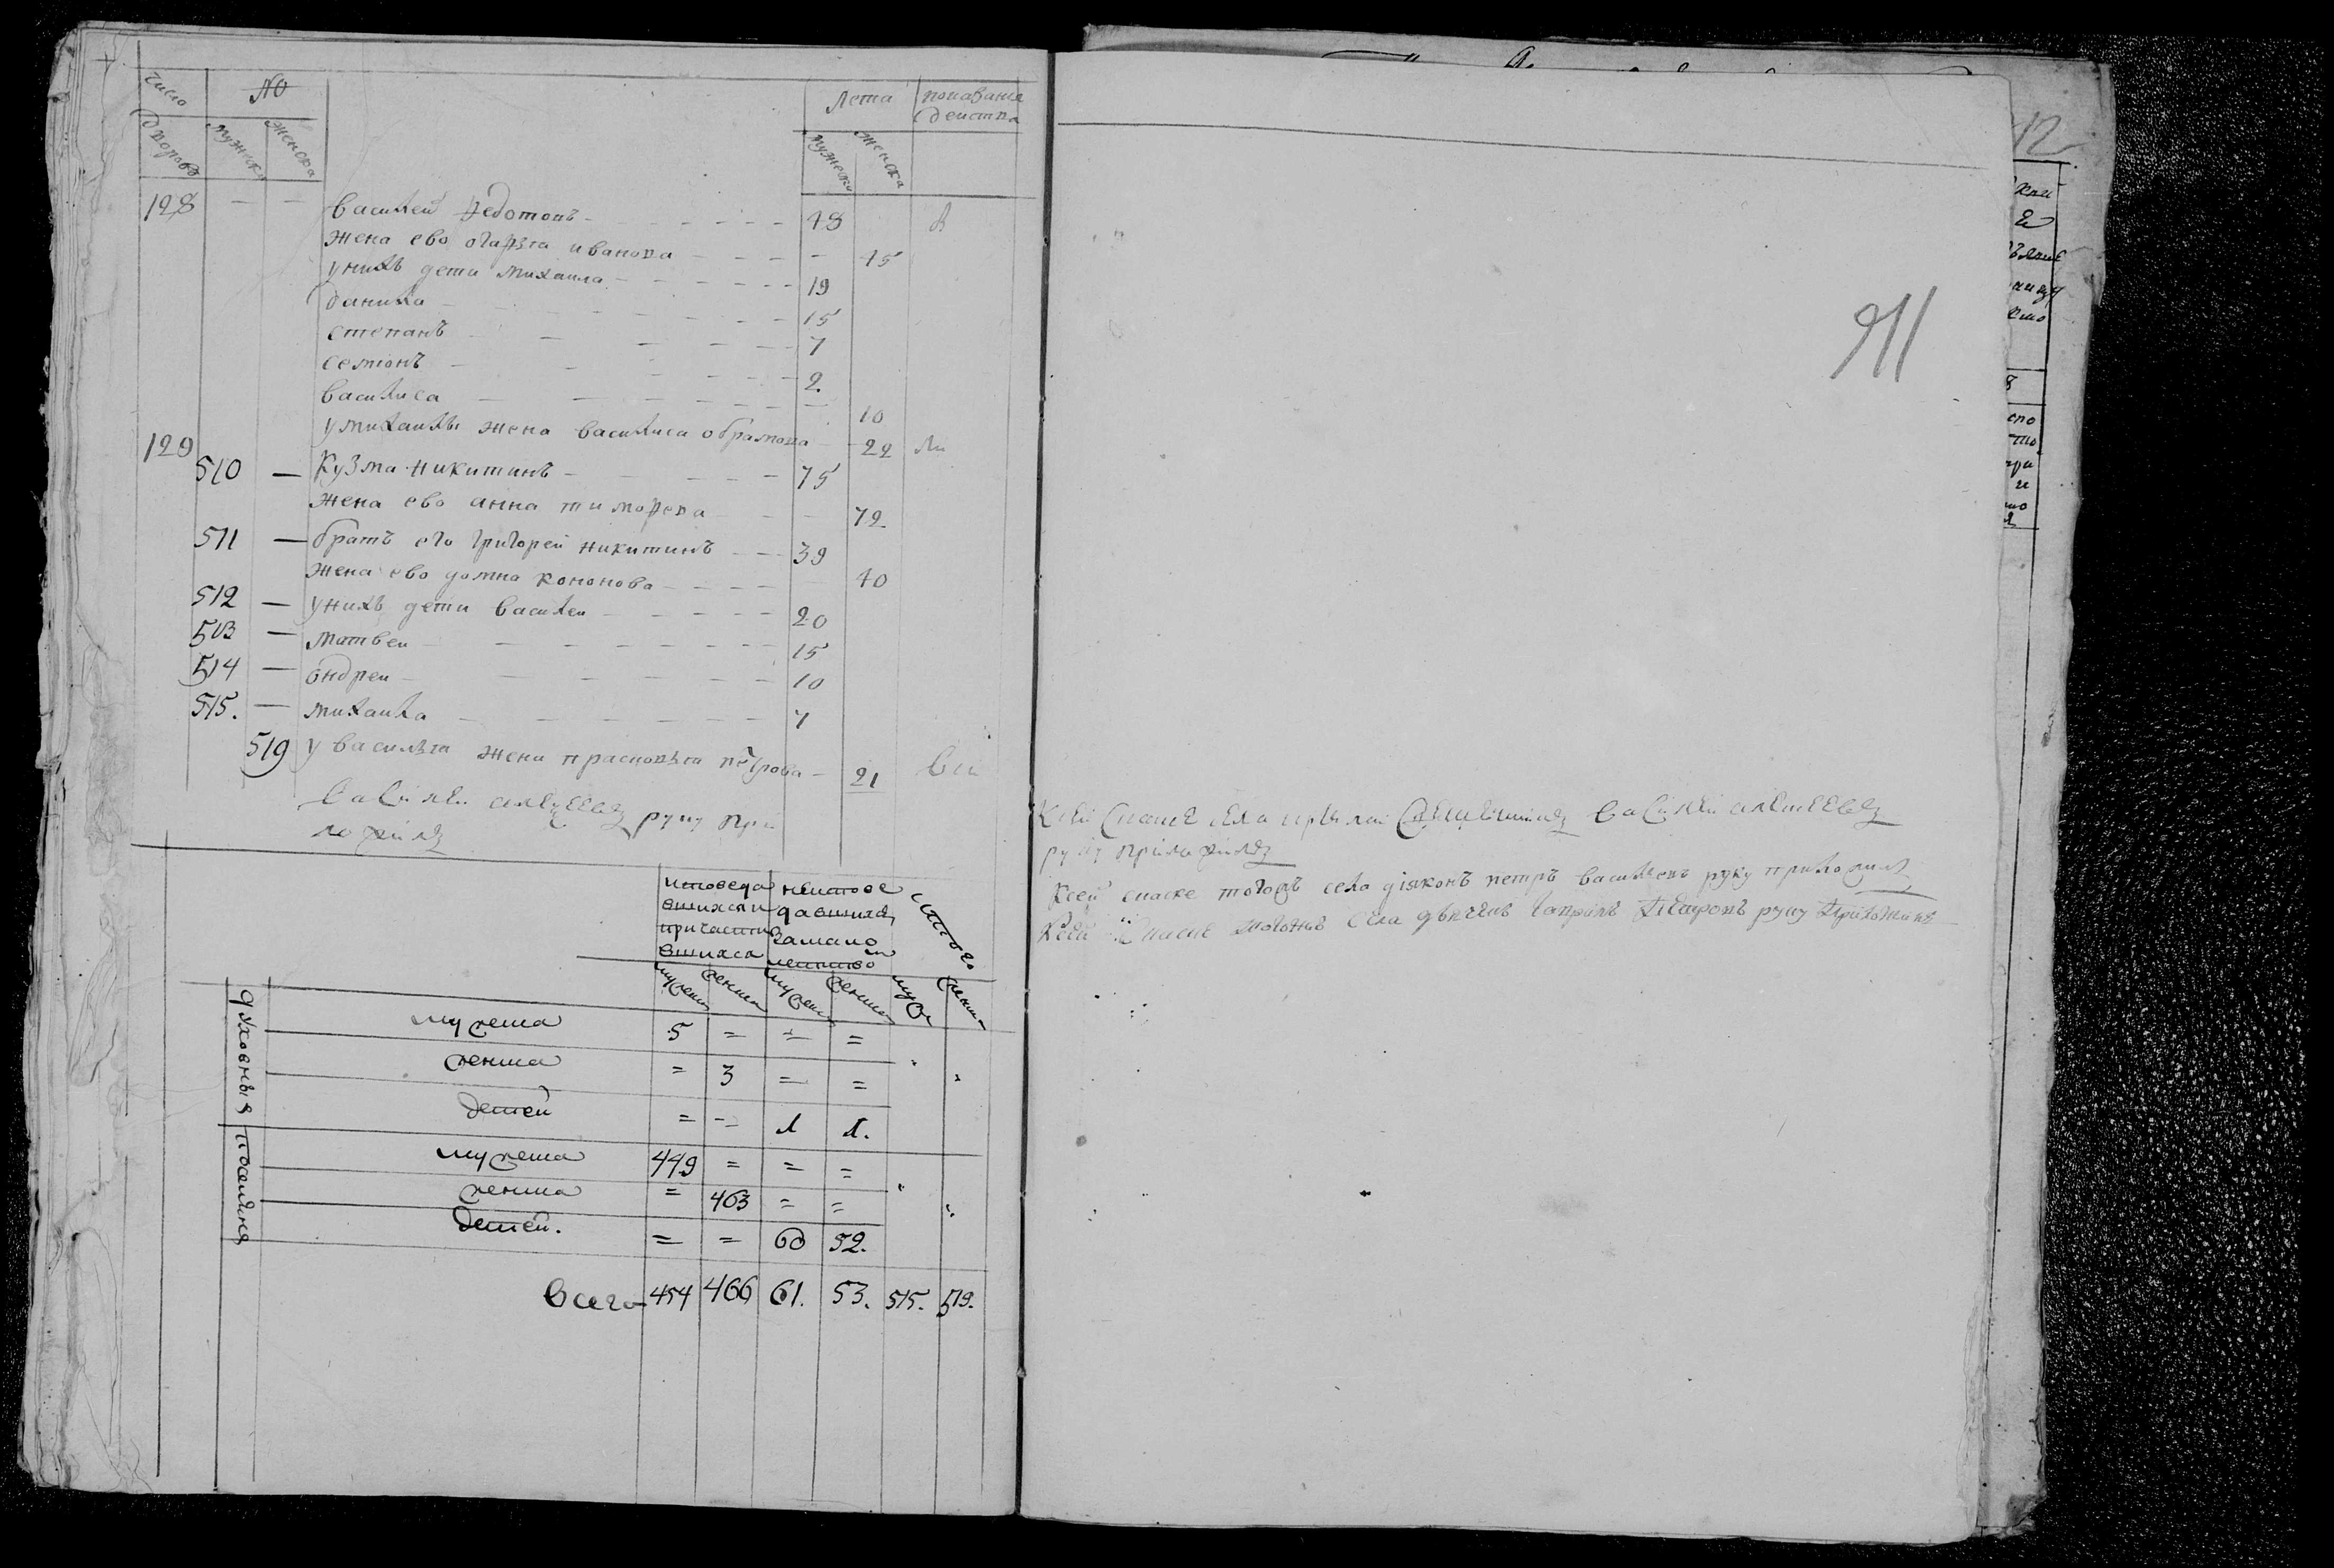 число дворовъ № мужеска женска Лета мужеска женска показания действа
128 — — василей федотовъ 48
жена ево огафья иванова 45
у нихъ дети михаила 19
данила 15
степанъ 7
семионъ 2
василиса 10
у михаилы жена василиса обрамова 22
129
510 — Кузма никитинъ 75
жена ево анна тимофева 72
511 — братъ его григорей никитинъ 39
жена ево домна кононова 40
512 — у нихъ дети василеи 20
513 — матвеи 15
514 — андреи 10
515. — михаила 7
519 у василья жена прасковья петрова 21
василеи алеѯеевъ руку при
ложилъ
исповеда неисповe итого
вшихся и давшихся
причасти замало
вшихся летство
мужеска женска мужеска женска муж женска
духовныя
мужеска 5 = = =
женска = 3 = =
детей = = 1 1.
поселяня
мужеска 449 = = =
женска = 463 = =
детей. = = 60 52.
Всего 454 466 61. 53. 515. 519.
911
К сей сказке села священникъ василей алексеевъ
руку приложилъ
К сей скаске тогожъ села діяконъ петръ василевъ руку приложилъ
К сей скаске тогожъ села дьячекъ гаврилъ петровъ руку приложилъ
12